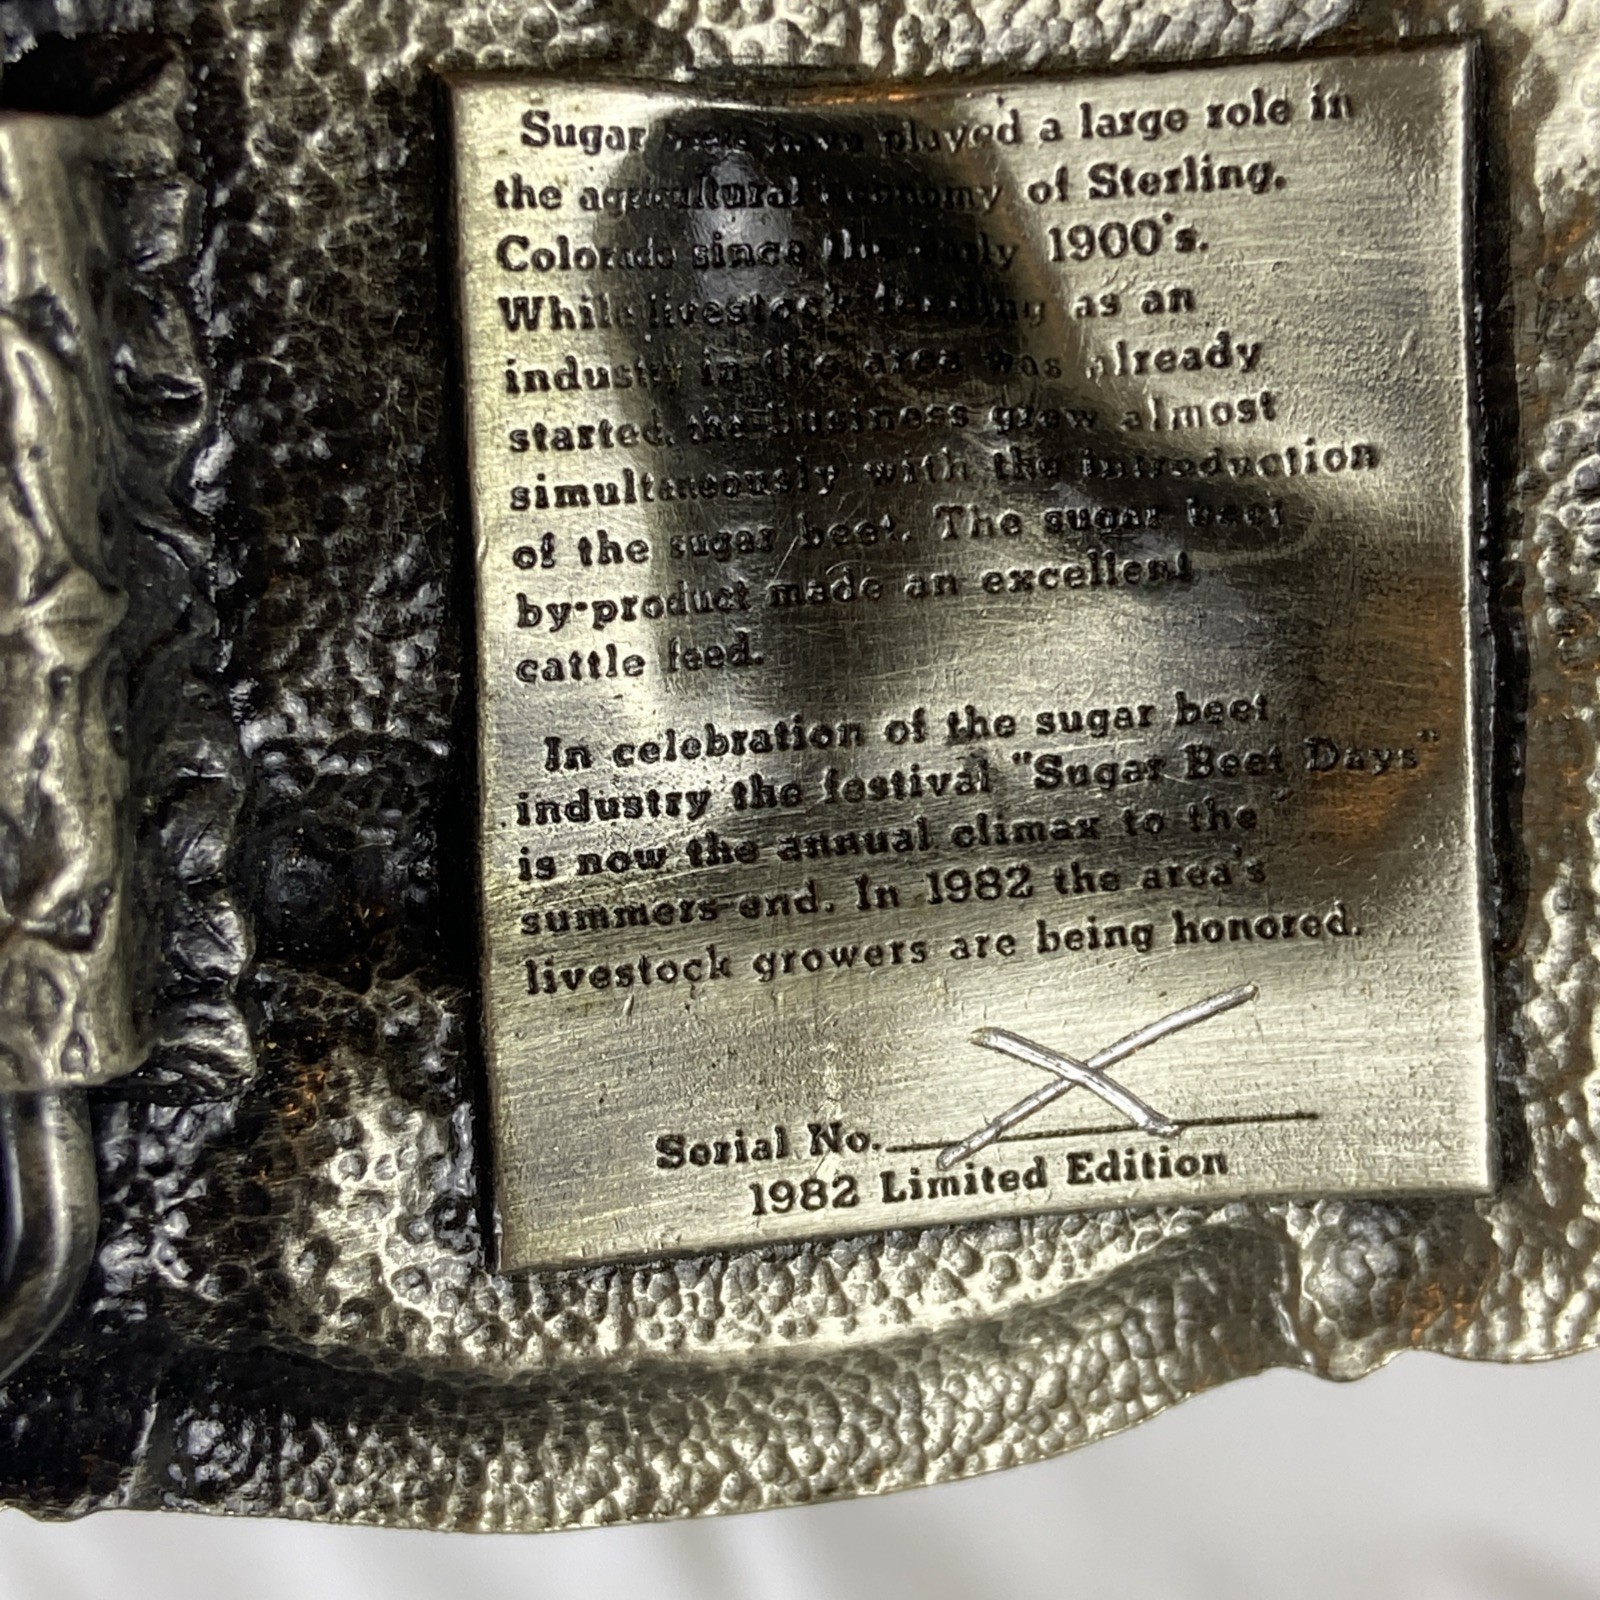 Sugar beets have played a large role in
the agricultural economy of Sterling.
Colorado since the early 1900's.
While livestock feeding as an
industry in the area was already
started, the business grew almost
simultaneously with the introduction
of the sugar beet. The sugar beet
by-product made an excellent
cattle feed.
In celebration of the sugar beet
industry the festival "Sugar Beet Days"
is now the annual climax to the
summers-end. In 1982 the area's
livestock growers are being honored.
Serial No. X
1982 Limited Edition